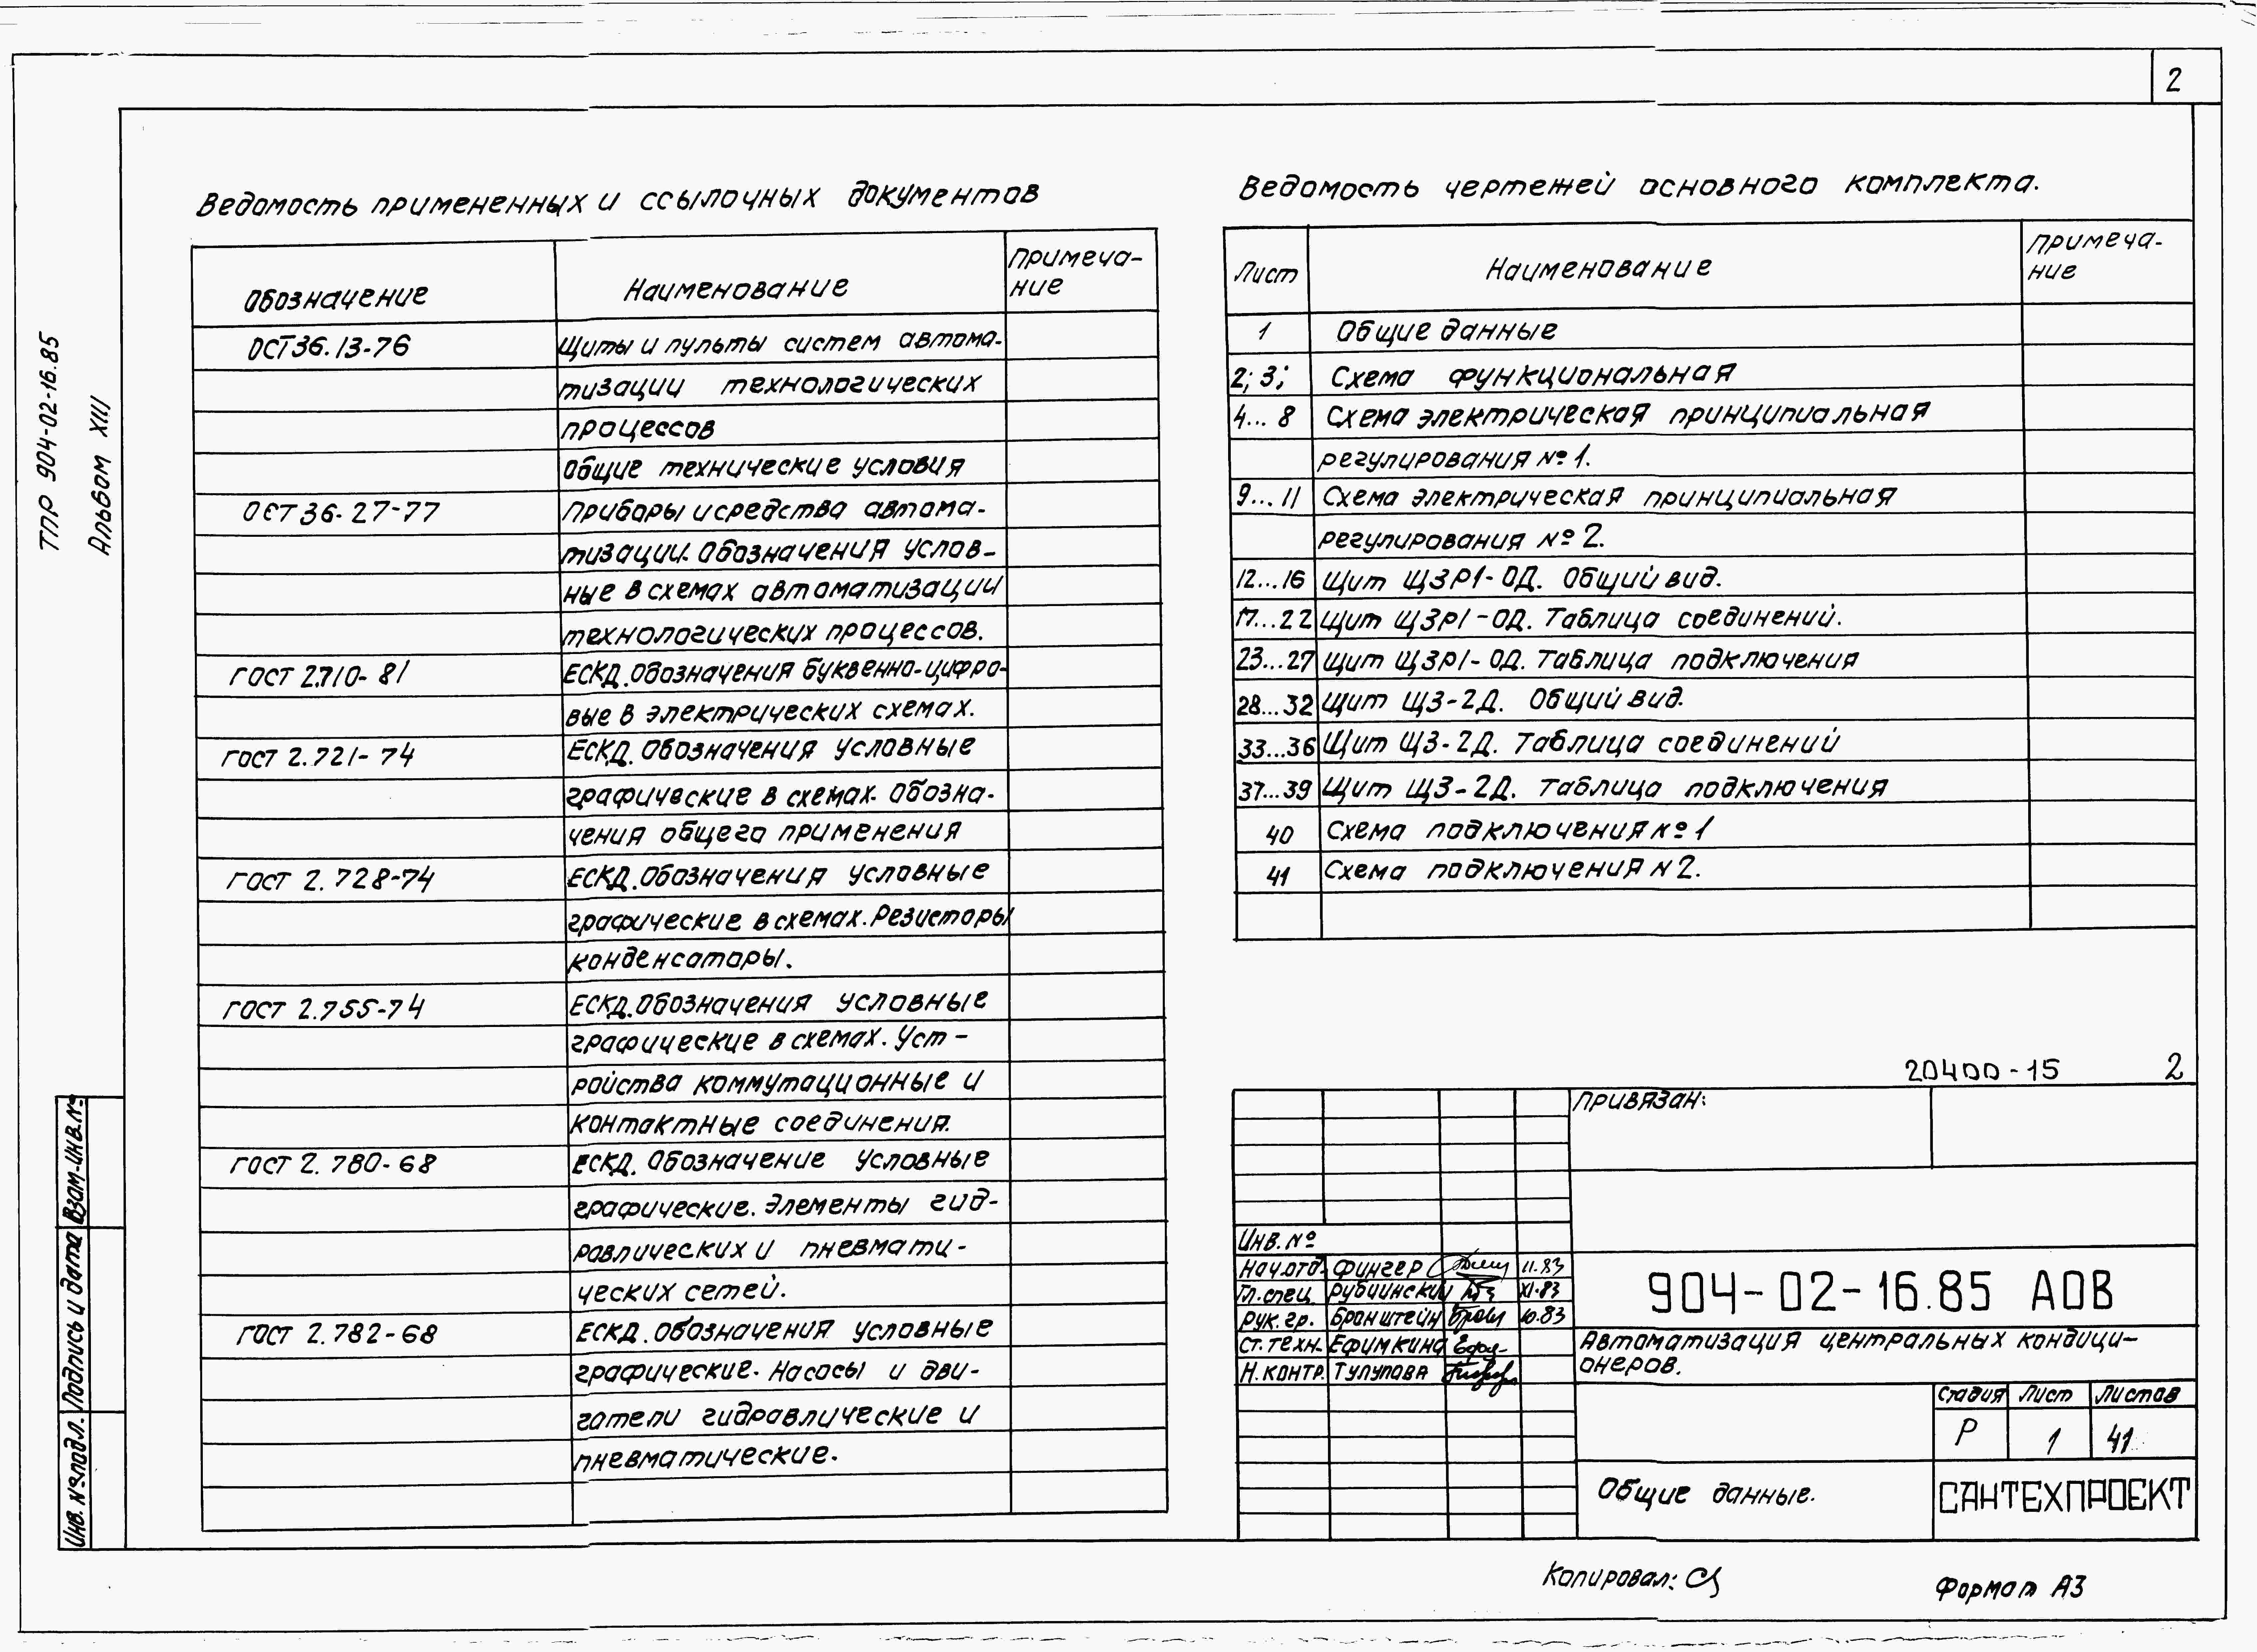 2
ТПР 904-02-16.85
Альбом XIII
Ведомость примененных и ссылочных документов
Обозначение
Наименование
Примеча-
ние
ОСТ 36.13-76
Щиты и пульты систем автома-
тизации технологических
процессов
Общие технические условия
ОСТ 36-27-77
Приборы и средства автома-
тизации. Обозначения услов-
ные в схемах автоматизации
технологических процессов.
ГОСТ 2.710-81
ЕСКД. Обозначения буквенно-цифро-
вые в электрических схемах.
ГОСТ 2.721-74
ЕСКД. Обозначения условные
графические в схемах. Обозна-
чения общего применения
ГОСТ 2.728-74
ЕСКД. Обозначения условные
графические в схемах. Резисторы
конденсаторы.
ГОСТ 2.755-74
ЕСКД. Обозначения условные
графические в схемах. Уст-
ройства коммутационные и
контактные соединения.
ГОСТ 2.780-68
ЕСКД. Обозначение условные
графические. Элементы гид-
равлических и пневмати-
ческих сетей.
ГОСТ 2.782-68
ЕСКД. Обозначения условные
графические. Насосы и дви-
гатели гидравлические и
пневматические.
Ведомость чертежей основного комплекта.
Лист
Наименование
Примеча-
ние
1 Общие данные
2; 3; Схема функциональная
4...8 Схема электрическая принципиальная
регулирования №1.
9...11 Схема электрическая принципиальная
регулирования №2.
12...16 Щит ЩЗР1-ОД. Общий вид.
17...22 Щит ЩЗР1-ОД. Таблица соединений.
23...27 Щит ЩЗР1-ОД. Таблица подключения
28...32 Щит ЩЗ-2Д. Общий вид.
33...36 Щит ЩЗ-2Д. Таблица соединений
37...39 Щит ЩЗ-2Д. Таблица подключения
40 Схема подключения №1
41 Схема подключения N2.
20400-15 2
Привязан:
Инв. №
Нач.отд. Фингер 11.83
Гл.спец. Рубчинский XI.83
Рук. гр. Бронштейн 10.83
Ст. техн. Ефимкина
Н. контр. Тулупова
904-02-16.85 АОВ
Автоматизация центральных кондици-
онеров.
Стадия Лист Листов
Р 1 41
Общие данные.
САНТЕХПРОЕКТ
Взам-инв.№
Подпись и дата
Инв. №подл.
Копировал:
Формат А3